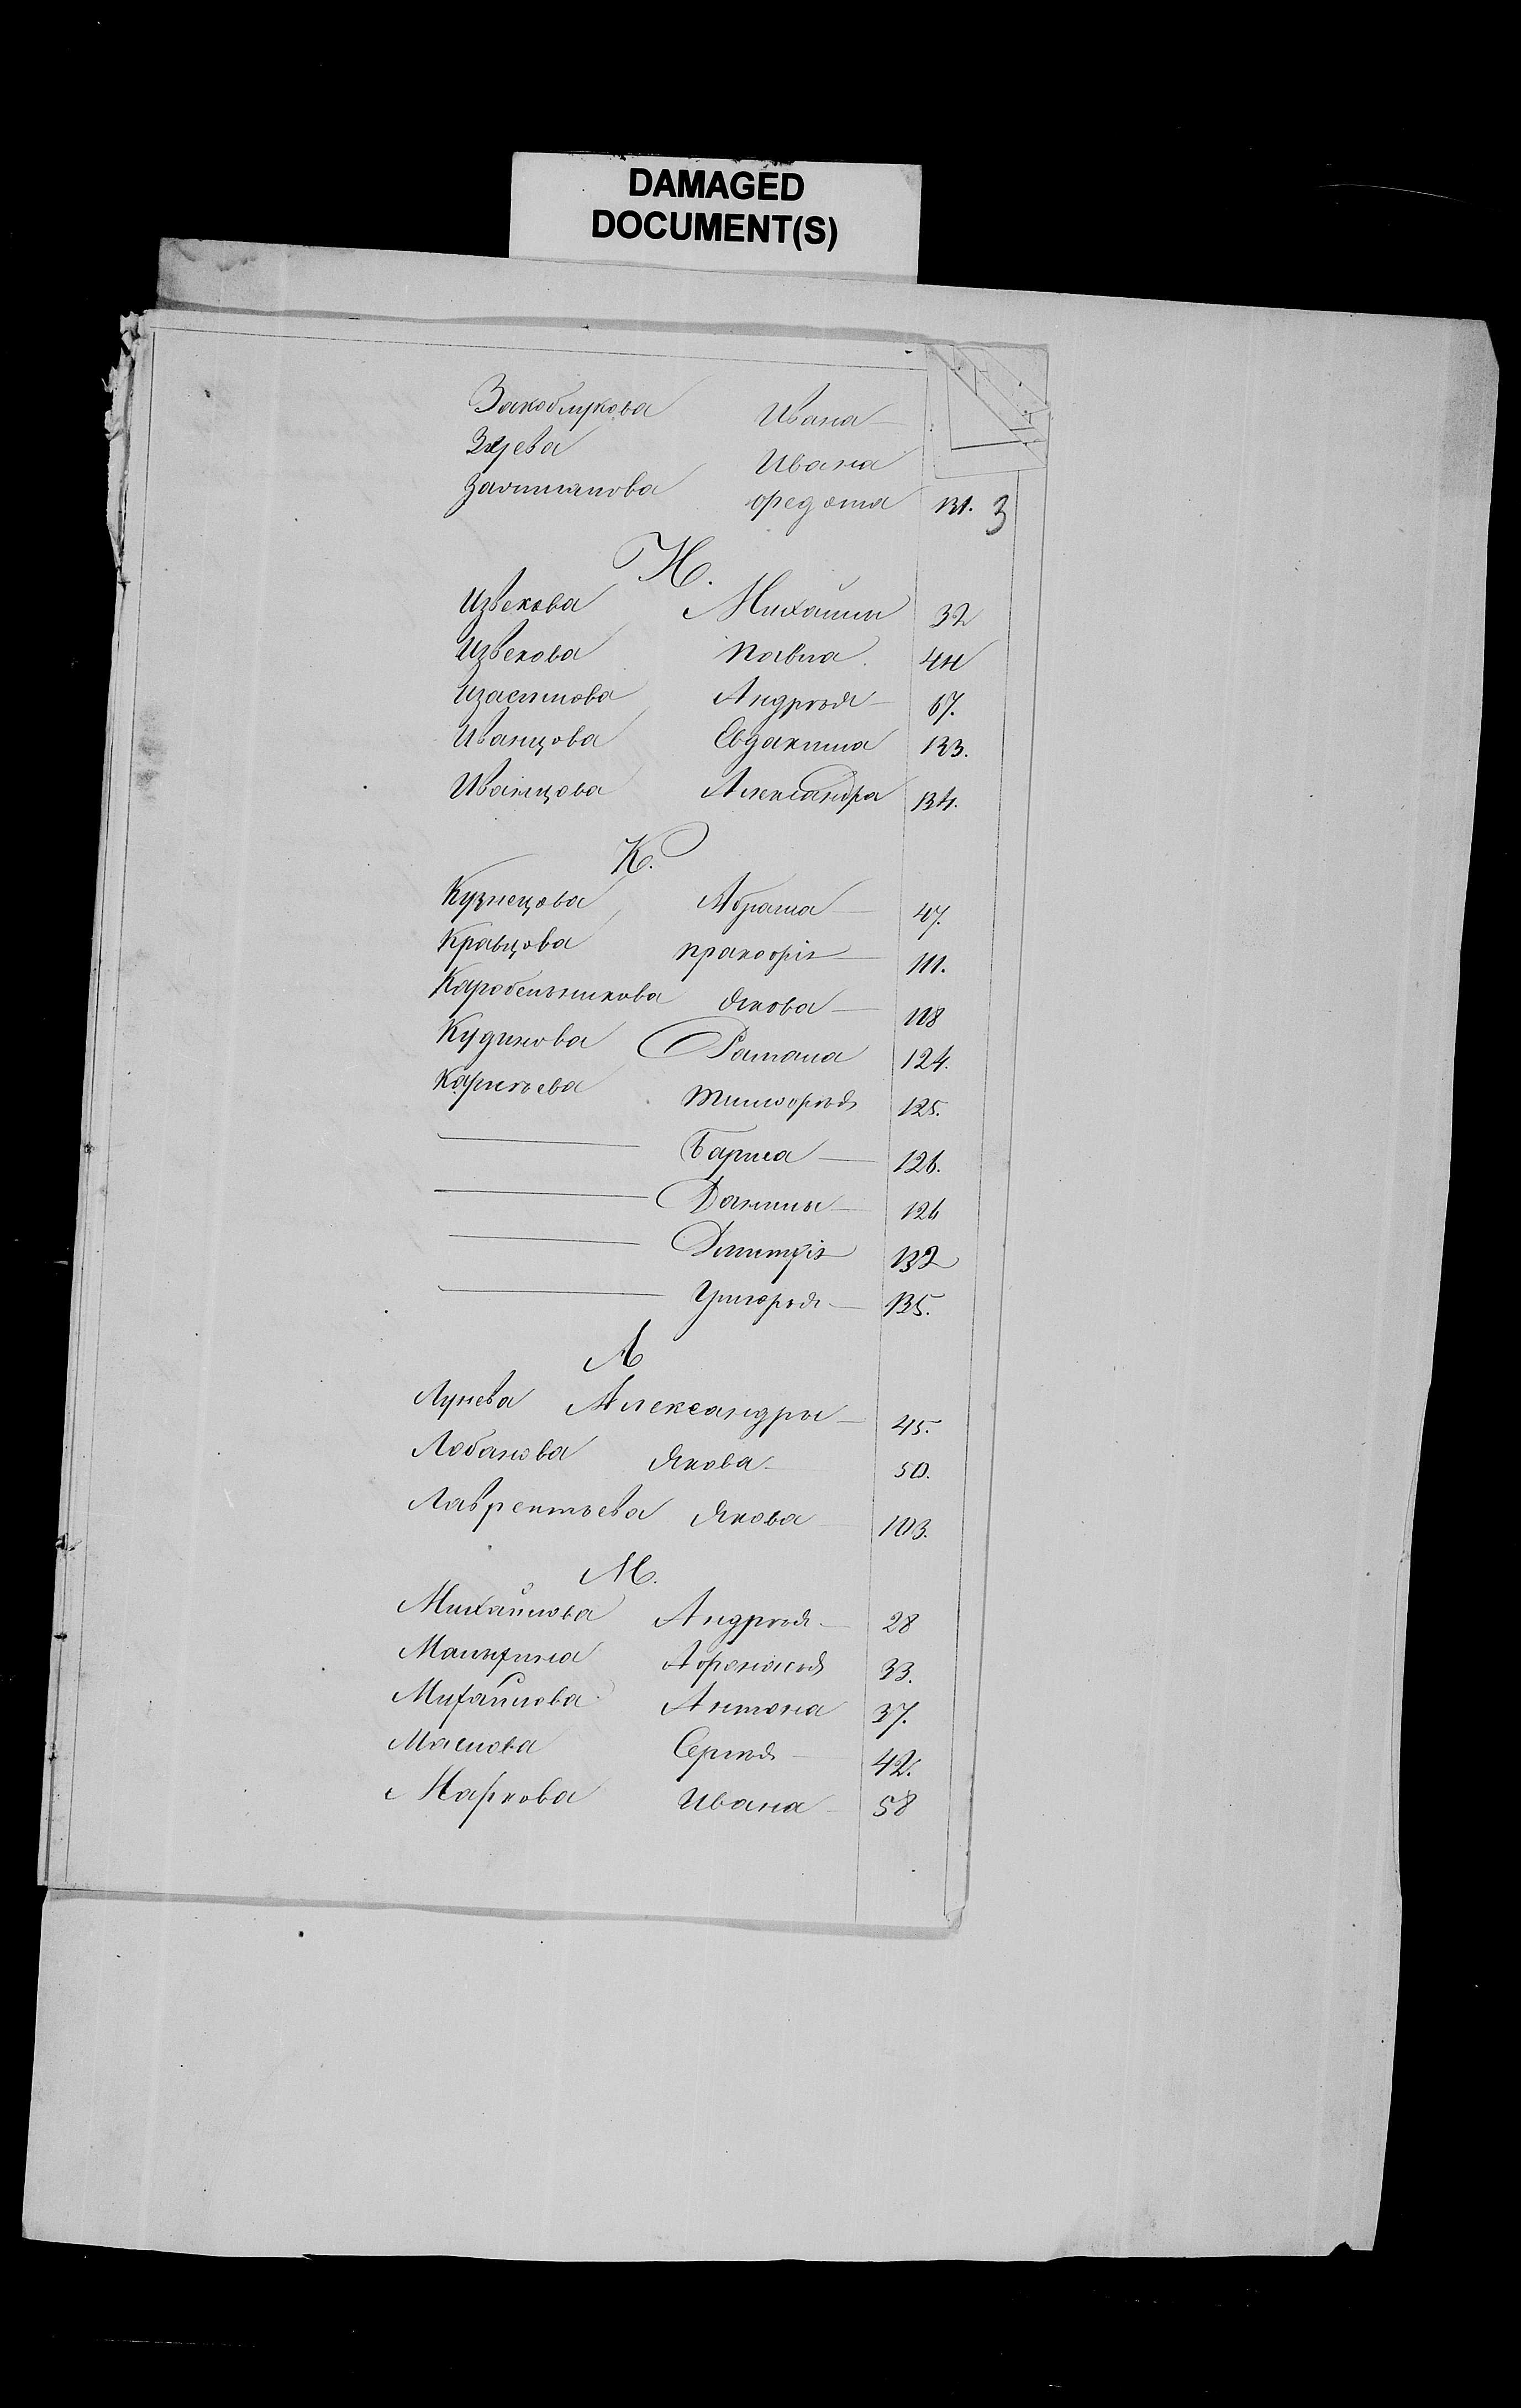 DAMAGED
DOCUMENT(S)
Закаблукова Ивана
Зуева Ивана
Федота 131. 3
И.
Извекова Михайлы 32
Извекова Павла 44
Андрѣя 67.
Иванцова Евдакима 133.
Иванцова Александра 134.
К.
Кузнецова Абрама 47.
Кравцова Пракофія 111.
Каробельникова Якова 118
Кудинова Рамана 124.
Карнѣева Тимофѣя 125.
Бариса 126.
Данилы 126
Дмитрія 132
Григорья 135.
Л
Лунева Александры 45.
Лобанова Якова 50.
Лаврентьева Якова 103.
М.
Михайлова Андрѣя 28
Малыхина Афонасья 33.
Михайлова Антона 37.
Маслова Сергѣя 42.
Маркова Ивана 58